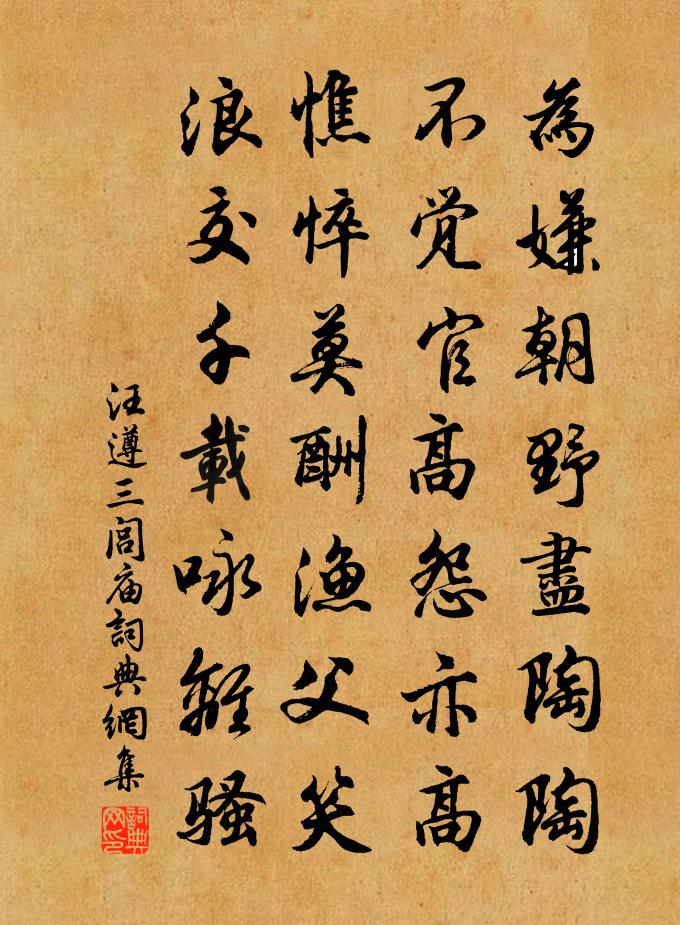 為嫌朝野盡陶陶
不觉官高怨亦高
憔悴莫酬渔父笑
浪交千載咏離骚
汪遵三閭庙詞典網集
詞典网印